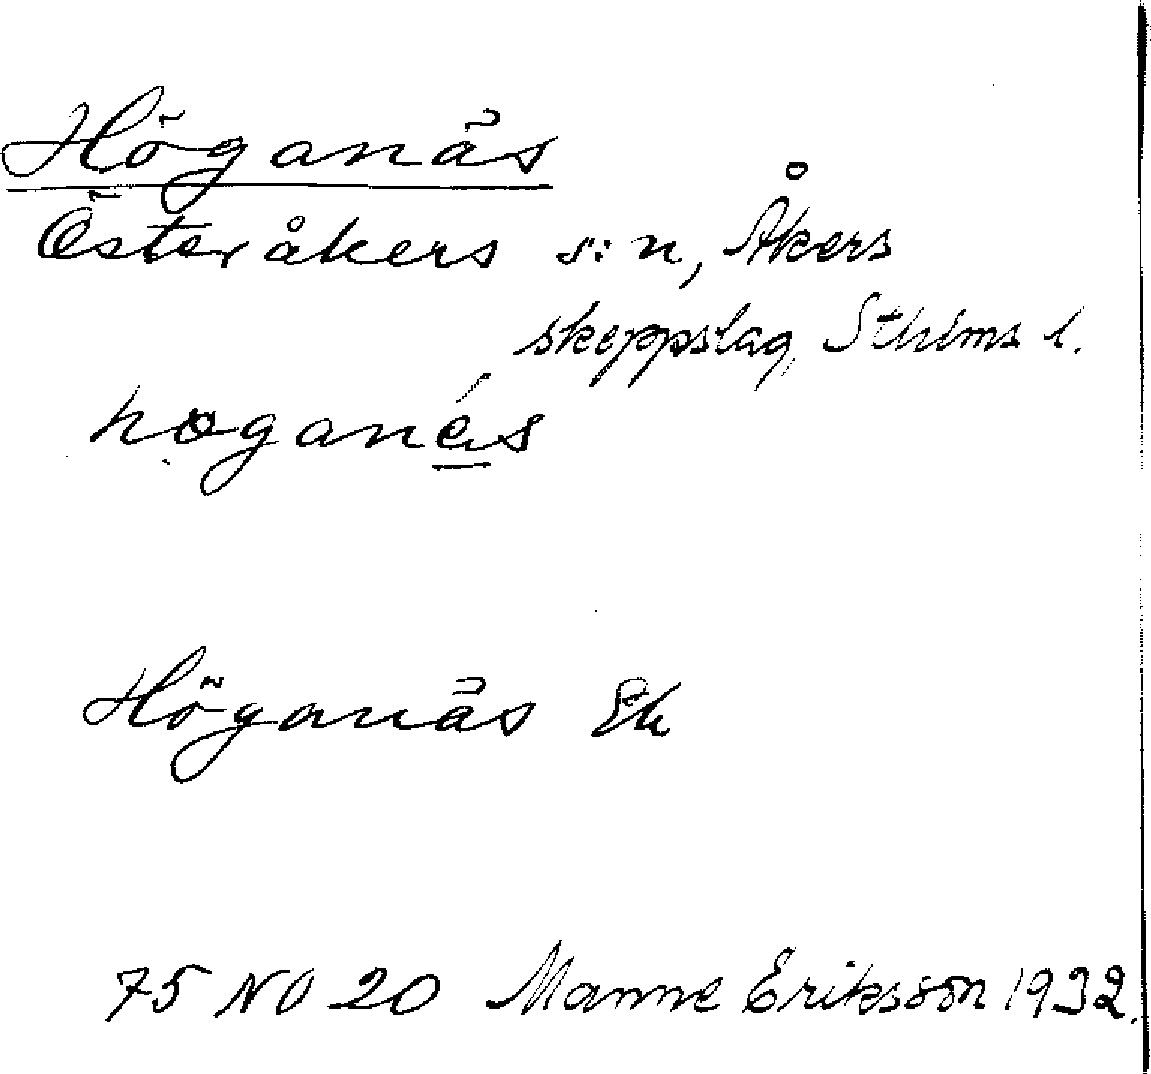 Höganäs
Österåkers s:n, Åkers
skeppslag, Sthlms l.
höganäs
Höganäs Ek
75 NO 20 Manne Eriksson 1932.